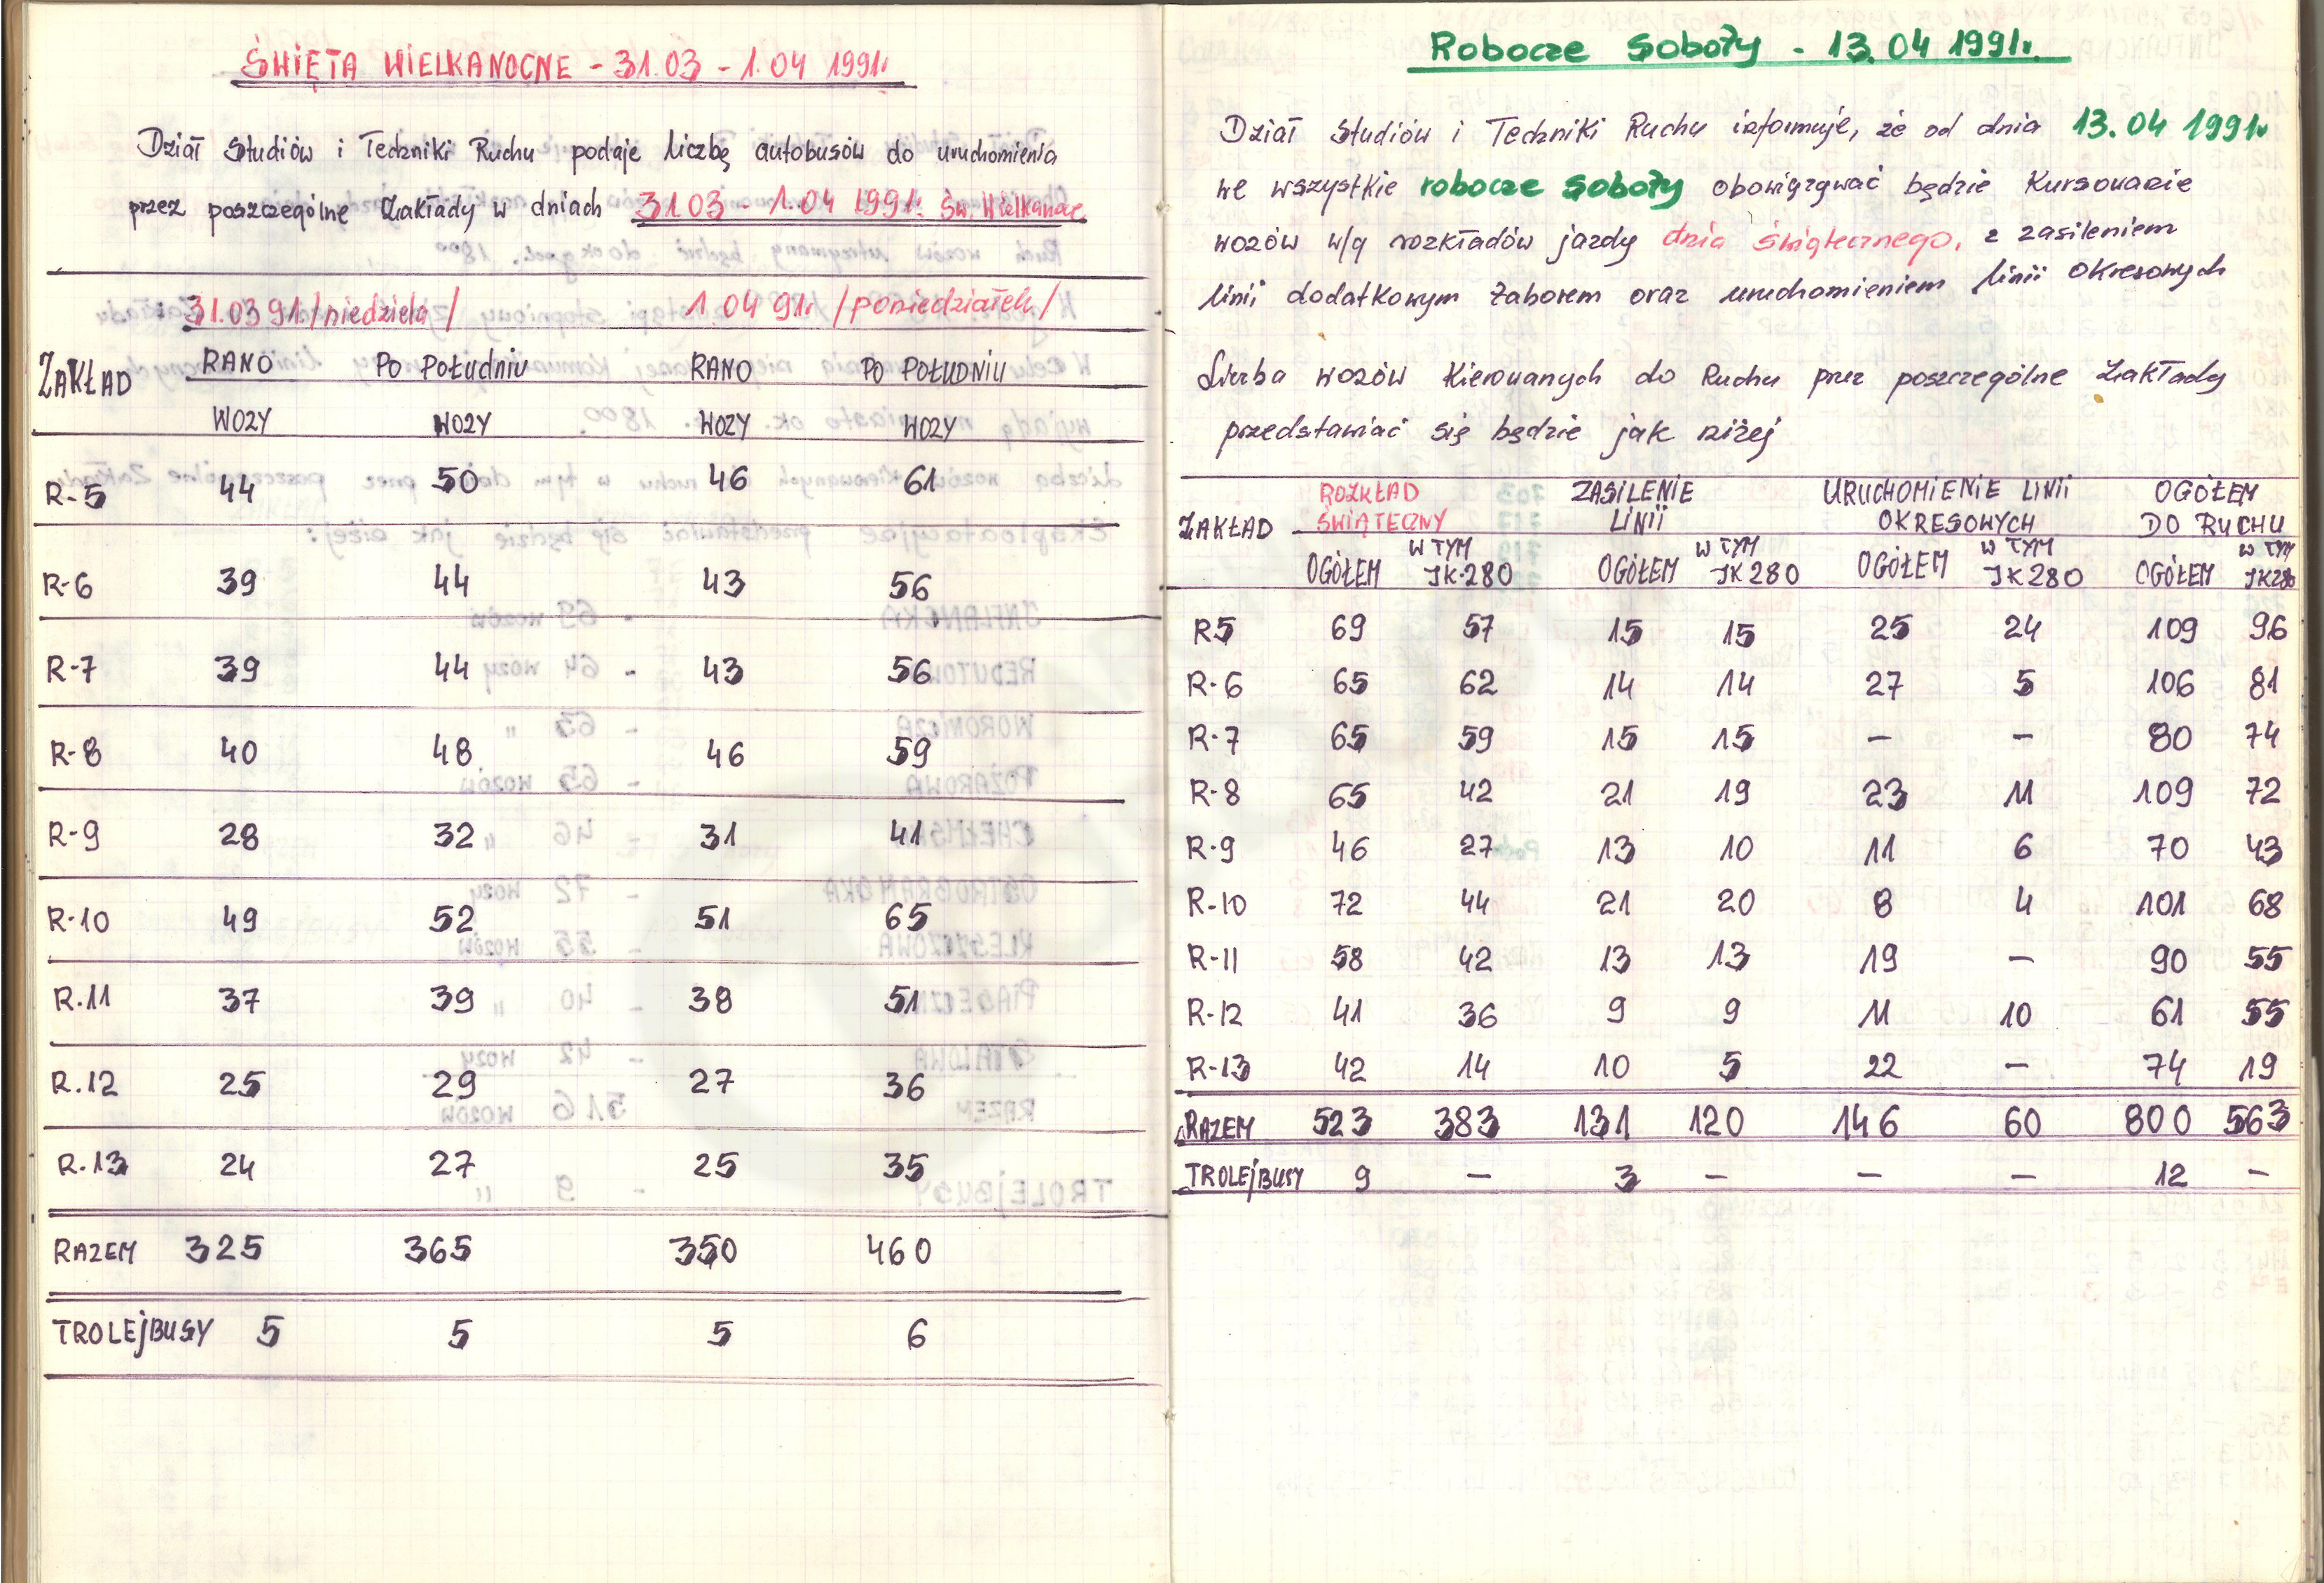 ŚWIĘTA WIELKANOCNE - 31.03 - 1.04 1991r.
Dział Studiów i Techniki Ruchu podaje liczbę autobusów do uruchomienia
przez poszczególne Zakłady w dniach 31.03 - 1.04 1991r. Św. Wielkanoc
31.03 91r. /niedziela/ 1.04 91r. /poniedziałek/
ZAKŁAD RANO PO POŁUDNIU RANO PO POŁUDNIU
WOZY WOZY WOZY WOZY
R-5 44 50 46 61
R-6 39 44 43 56
R-7 39 44 43 56
R-8 40 48 46 59
R-9 28 32 31 41
R-10 49 52 51 65
R.11 37 39 38 51
R.12 25 29 27 36
R.13 24 27 25 35
RAZEM 325 365 350 460
TROLEJBUSY 5 5 5 6
Robocze Soboty - 13.04 1991r.
Dział Studiów i Techniki Ruchu informuje, że od dnia 13.04 1991r
we wszystkie robocze soboty obowiązywać będzie kursowanie
wozów w/g rozkładów jazdy dnia świątecznego, z zasileniem
linii dodatkowym taborem oraz uruchomieniem linii okresowych
Liczba wozów kierowanych do Ruchu przez poszczególne Zakłady
przedstawiać się będzie jak niżej
ZAKŁAD ROZKŁAD ZASILENIE URUCHOMIENIE LINII OGÓŁEM
ŚWIĄTECZNY LINII OKRESOWYCH DO RUCHU
OGÓŁEM W TYM JK-280 OGÓŁEM W TYM JK 280 OGÓŁEM W TYM JK 280 OGÓŁEM W TYM JK 280
R5 69 57 15 15 25 24 109 96
R-6 65 62 14 14 27 5 106 81
R-7 65 59 15 15 - - 80 74
R-8 65 42 21 19 23 11 109 72
R-9 46 27 13 10 11 6 70 43
R-10 72 44 21 20 8 4 101 68
R-11 58 42 13 13 19 - 90 55
R-12 41 36 9 9 11 10 61 55
R-13 42 14 10 5 22 - 74 19
RAZEM 523 383 131 120 146 60 800 563
TROLEJBUSY 9 - 3 - - - 12 -